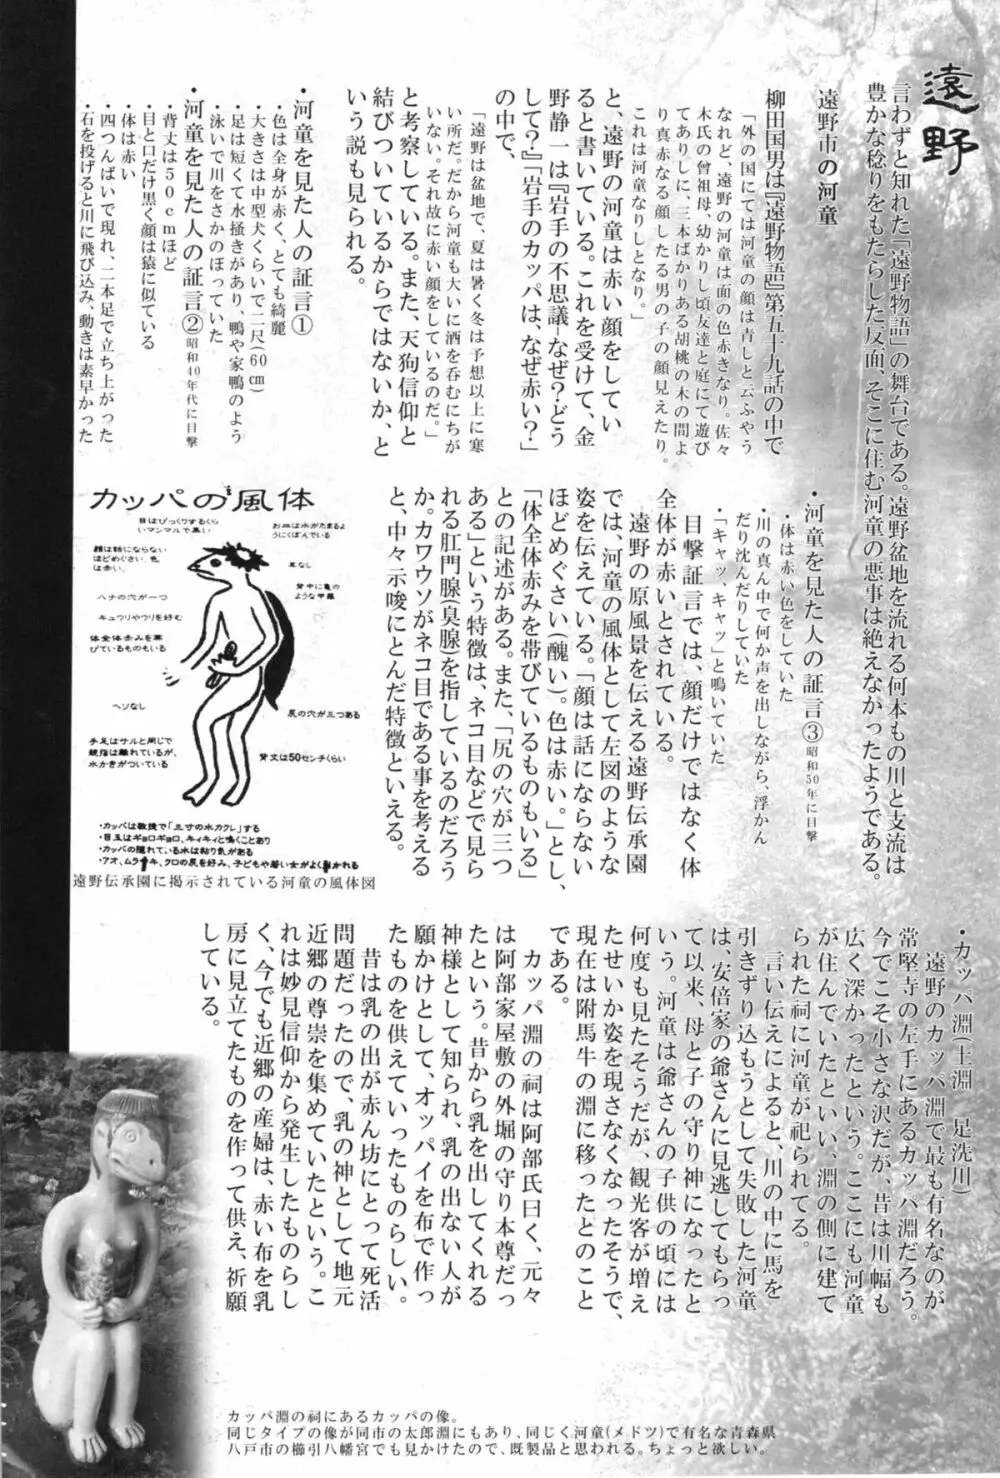 遠野
言わずと知れた「遠野物語」の舞台である。遠野盆地を流れる何本もの川と支流は
豊かな稔りをもたらした反面、そこに住む河童の悪事は絶えなかったようである。
遠野市の河童
柳田国男は『遠野物語』第五十九話の中で
「外の国にては河童の顔は青しと云ふやう
なれど、遠野の河童は面の色赤きなり。佐々
木氏の曾祖母、幼かりし頃友達と庭にて遊び
てありしに、三本ばかりある胡桃の木の間よ
り真赤なる顔したる男の子の顔見えたり。
これは河童なりしとなり。」
と、遠野の河童は赤い顔をしてい
ると書いている。これを受けて、金
野静一は『岩手の不思議−なぜ?どう
して?』『岩手のカッパは、なぜ赤い?』
の中で、
「遠野は盆地で、夏は暑く冬は予想以上に寒
い所だ。だから河童も大いに酒を呑むにちが
いない。それ故に赤い顔をしているのだ。」
と考察している。また、天狗信仰と
結びついているからではないか、と
いう説も見られる。
・河童を見た人の証言①
・色は全身が赤く、とても綺麗
・大きさは中型犬くらいで二尺(60㎝)
・足は短くて水掻きがあり、鴨や家鴨のよう
・泳いで川をさかのぼっていた
・河童を見た人の証言②昭和40年代に目撃
・背丈は50cmほど
・目と口だけ黒く顔は猿に似ている
・体は赤い
・四つんばいで現れ、二本足で立ち上がった
・石を投げると川に飛び込み、動きは素早かった
・河童を見た人の証言③昭和50年に目撃
・体は赤い色をしていた
・川の真ん中で何か声を出しながら、浮かん
だり沈んだりしていた
・「キャッ、キャッ」と鳴いていた
目撃証言では、顔だけではなく体
全体が赤いとされている。
遠野の原風景を伝える遠野伝承園
では、河童の風体として左図のような
姿を伝えている。「顔は話にならない
ほどめぐさい(醜い)。色は赤い。」とし、
「体全体赤みを帯びているものもいる」
との記述がある。また、「尻の穴が三つ
ある」という特徴は、ネコ目などで見ら
れる肛門腺(臭腺)を指しているのだろう
か。カワウソがネコ目である事を考える
と、中々示唆にとんだ特徴といえる。
カッパの風体
目はびっくりするくら
いマンマルで黒い
お皿は水がたまるよ
うにくぼんでいる
顔は話にならない
ほどめぐさい、色
は赤い。
耳なし
ハナの穴が一つ
背中に亀の
ような甲羅
キュウリやウリを好む
体全体赤みを帯
びているものもいる
ヘソなし
尻の穴が三つある
手足はサルと同じで
親指は離れているが、
水かきがついている
背丈は50センチくらい
・カッパは教授で「三寸の水カクレ」する
・目玉はギョロギョロ、キィキィと鳴くことあり
・カッパの隠れている水は粘り気がある
・アオ、ムラサキ、クロの尻を好み、子どもや若い女がよく引かれる
遠野伝承園に掲示されている河童の風体図
・カッパ淵(土淵 足洗川)
遠野のカッパ淵で最も有名なのが
常堅寺の左手にあるカッパ淵だろう。
今でこそ小さな沢だが、昔は川幅も
広く深かったという。ここにも河童
が住んでいたといい、淵の側に建て
られた祠に河童が祀られてる。
言い伝えによると、川の中に馬を
引きずり込もうとして失敗した河童
は、安倍家の爺さんに見逃してもらっ
て以来、母と子の守り神になったと
いう。河童は爺さんの子供の頃には
何度も見たそうだが、観光客が増え
たせいか姿を現さなくなったそうで、
現在は附馬牛の淵に移ったとのこと
である。
カッパ淵の祠は阿部氏曰く、元々
は阿部家屋敷の外堀の守り本尊だっ
たという。昔から乳を出してくれる
神様として知られ、乳の出ない人が
願かけとして、オッパイを布で作っ
たものを供えていったものらしい。
昔は乳の出が赤ん坊にとって死活
問題だったので、乳の神として地元
近郷の尊崇を集めていたという。こ
れは妙見信仰から発生したものらし
く、今でも近郷の産婦は、赤い布を乳
房に見立てたものを作って供え、祈願
している。
カッパ淵の祠にあるカッパの像。
同じタイプの像が同市の太郎淵にもあり、同じく河童(メドツ)で有名な青森県
八戸市の櫛引八幡宮でも見かけたので、既製品と思われる。ちょっと欲しい。